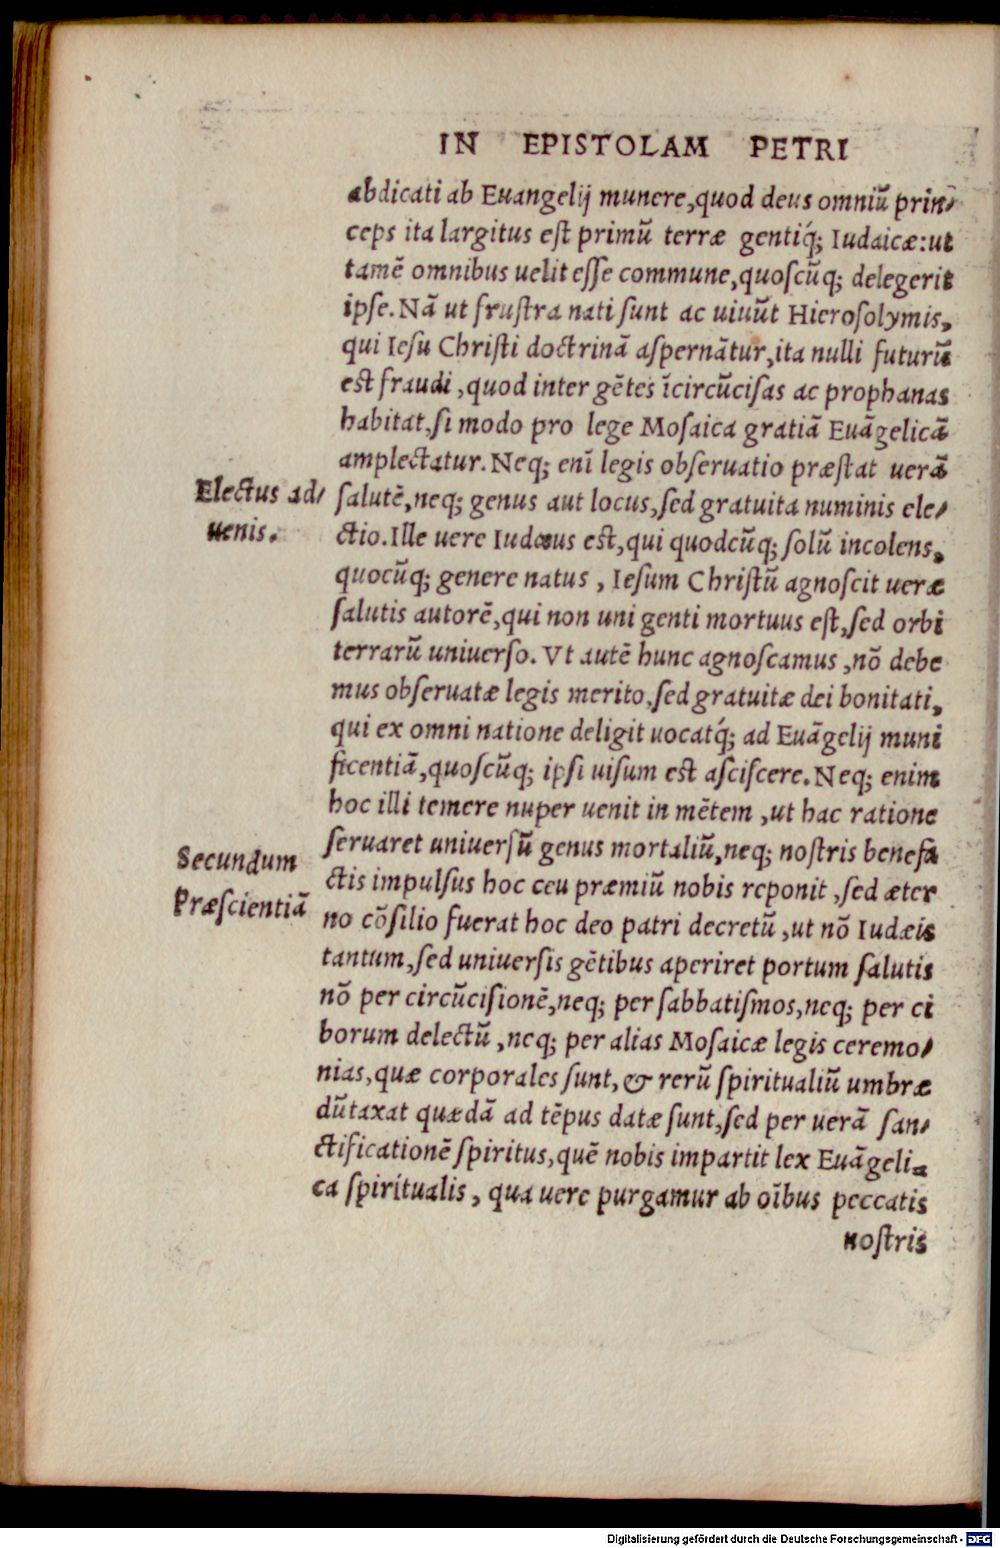 IN EPISTOLAM PETRI
abdicati ab Euangelij munere, quod deus omniũ prin⸗
ceps ita largitus eſt primũ terræ gentiq́; Iudaicæ: ut
tamẽ omnibus uelit eſſe commune, quoſcũq; delegerit
ipſe. Nã ut fruſtra nati ſunt ac uiuũt Hieroſolymis,
qui Ieſu Chriſti doctrinã aſpernãtur, ita nulli futurũ
eſt fraudi, quod inter gẽtes ĩcircũciſas ac prophanas
habitat, ſi modo pro lege Moſaica gratiã Euãgelicã
amplectatur. Neq; enĩ legis obſeruatio præſtat uerã
Electus ad⸗
uenis.
ſalutẽ, neq; genus aut locus, ſed gratuita numinis ele⸗
ctio. Ille uere Iudæus eſt, qui quodcũq; ſolũ incolens,
quocũq; genere natus, Ieſum Chriſtũ agnoſcit ueræ
ſalutis autorẽ, qui non uni genti mortuus eſt, ſed orbi
terrarũ uniuerſo. Vt autẽ hunc agnoſcamus, nõ debe
mus obſeruatæ legis merito, ſed gratuitæ dei bonitati,
qui ex omni natione deligit uocatq́; ad Euãgelij muni
ficentiã, quoſcũq; ipſi uiſum eſt aſciſcere. Neq; enim
hoc illi temere nuper uenit in mẽtem, ut hac ratione
ſeruaret uniuerſũ genus mortaliũ, neq; noſtris benefa
Secundum
Præſcientiã
ctis impulſus hoc ceu præmiũ nobis reponit, ſed æter
no cõſilio fuerat hoc deo patri decretũ, ut nõ Iudæis
tantum, ſed uniuerſis gẽtibus aperiret portum ſalutis
nõ per circũciſionẽ, neq; per ſabbatiſmos, neq; per ci
borum delectũ, neq; per alias Moſaicæ legis ceremo⸗
nias, quæ corporales ſunt, & rerũ ſpiritualiũ umbræ
dũtaxat quædã ad tẽpus datæ ſunt, ſed per uerã ſan⸗
ctificationẽ ſpiritus, quẽ nobis impartit lex Euãgeli⸗
ca ſpiritualis, qua uere purgamur ab oĩbus peccatis
noſtris
Digitalisierung gefördert durch die Deutsche Forschungsgemeinschaft - DFG